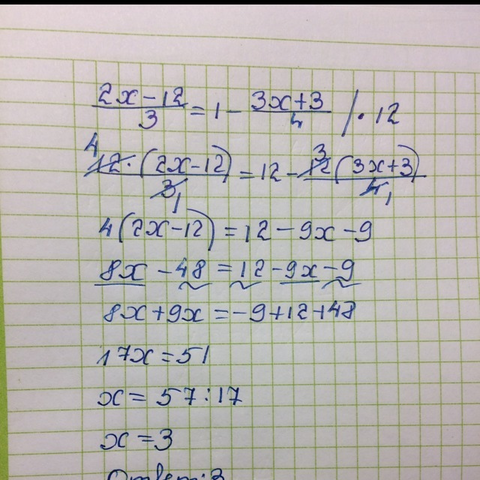 2x-12/3 = 1 - 3x+3/4 /·12
4 12·(2x-12)/3 1 = 12 - 3 12(3x+3)/4 1
4(2x-12)=12-9x-9
8x-48=12-9x-9
8x+9x=-9+12+48
17x=51
x=57:17
x=3
Ответ:3